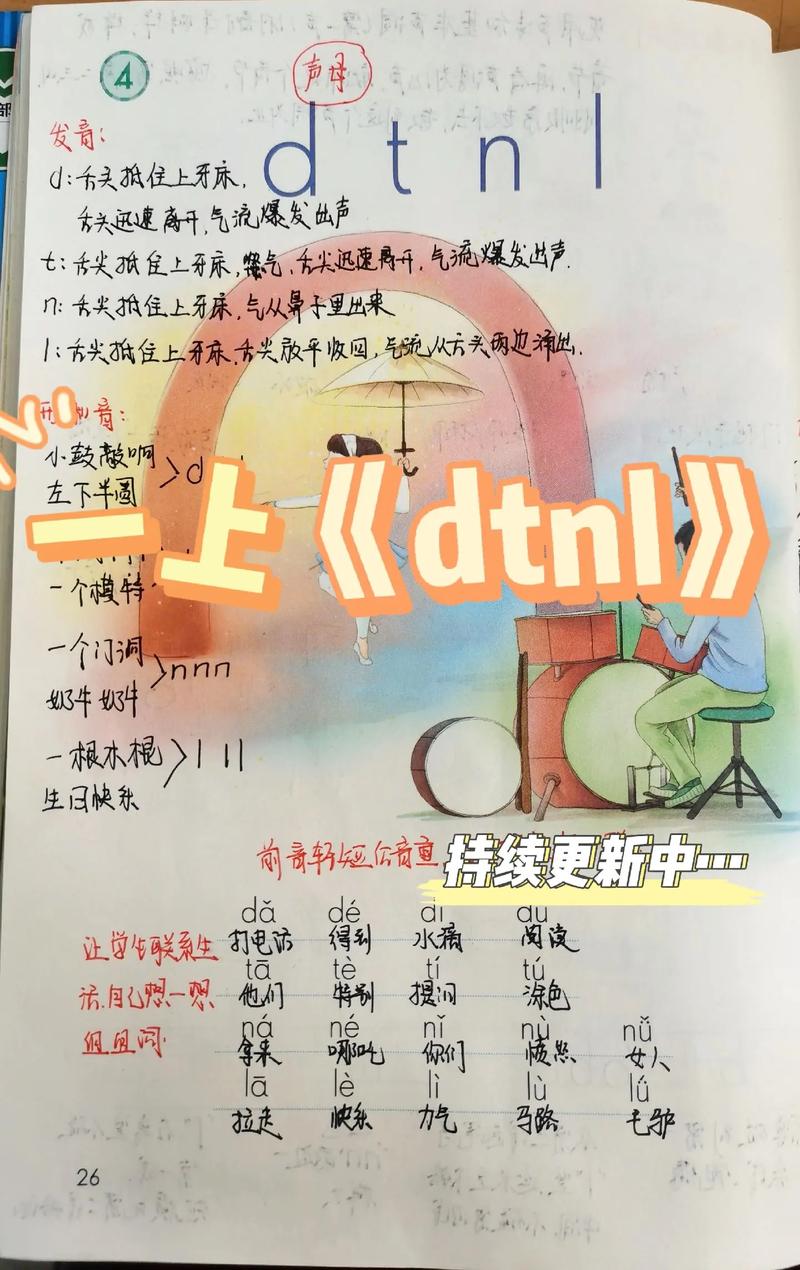 4
声母
d t n l
发音：
d：舌头抵住上牙床，
舌头迅速离开，气流爆发出声
t：舌尖抵住上牙床，憋气，舌尖迅速离开，气流爆发出声.
n：舌尖抵住上牙床，气从鼻子里出来
l：舌尖抵住上牙床，舌尖放平收回，气流从舌头两边涌出.
小鼓敲响
左下半圆
>d
一上《dtnl》
一个模特
一个门洞
奶牛 奶牛
>nnn
一根木棍
生日快乐
>l l l
前音轻短后音重
持续更新中…
dǎ dé dī dú
让学生联系生
打电话 得到 水滴 阅读
tā tè tí tú
活，自己想一想
他们 特别 提问 涂色
组组词
ná né nǐ nù nǚ
拿来 哪吒 你们 愤怒 女人
lā lè lì lù lǘ
拉走 快乐 力气 马路 毛驴
26